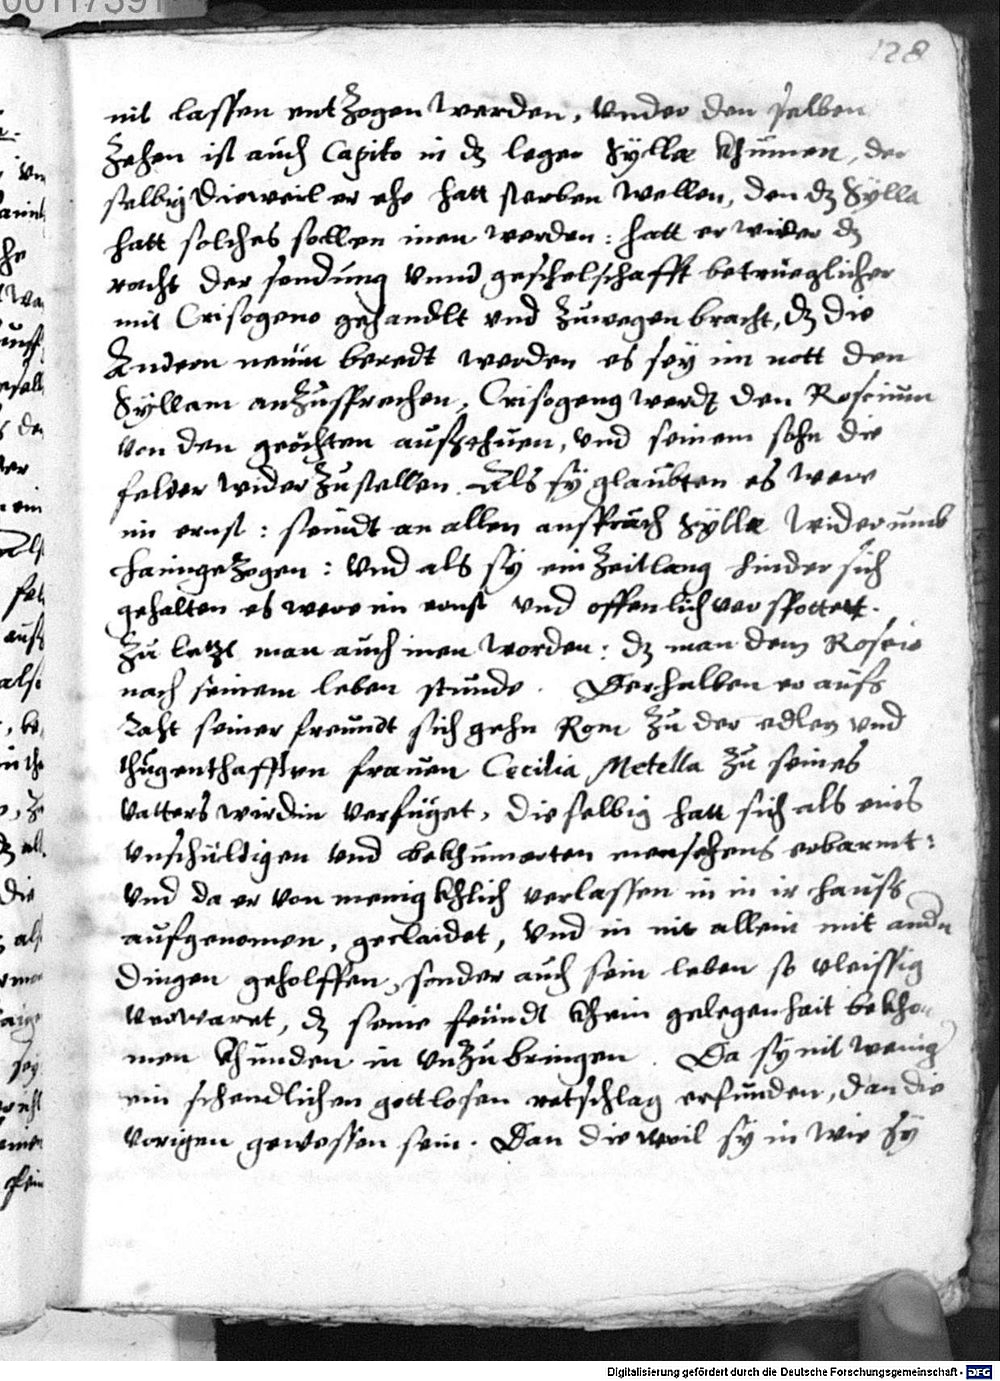 128
nit lassen entzogen werden, vnder den selben
zehen ist auch Capito in dz leger Syllæ khumen, der
selbig dieweil er ehe hatt sterben wellen, den dz Sylla
hatt solches sollen inen werden: hatt er wider dz
recht der sendung vnnd geschelschafft betrüeglicher
mit Crisogeno gehandlt vnd zuwegen bracht, dz die
Andern neün beredt werden es sey im nott den
Syllam anzusprechen, Crisogenus werdt den Roscium
von den geöchten aufzthuen, vnd seinem sohn die
felder wider zustellen. Als sy glaubten es were
im ernst: seindt an allen anspruch Syllæ widerumb
haimgezogen: Vnd als sy ein zeitlang hinder sich
gehalten es were im ernst vnd offenlich verspottet.
Zu letzt man auch inen worden: dz man dem Roscio
nach seinem leben stunde. Derhalben er aufs
Raht seiner freundt sich gehn Rom zu der edlen vnd
thugenthafften frauen Cecilia Metella zu seines
vatters wirdin verfüget, die selbig hatt sich als eines
vnschuldigen vnd bekhumerten menschens erbarmt:
vnd da er von menigkhlich verlassen in in ir hauss
aufgenomen, geclaidet, vnd in nit allein mit andn
dingen geholffen, sonder auch sein leben so vleissig
verwaret, dz seine feindt khein gelegenhait bekho
men khunden in vmzubringen. Da sy nit wenig
ein schendlichen gottlosen ratschlag erfunden, dan die
vorigen gewessen sein. Dan die weil sy in wie sy
Digitalisierung gefördert durch die Deutsche Forschungsgemeinschaft - DFG